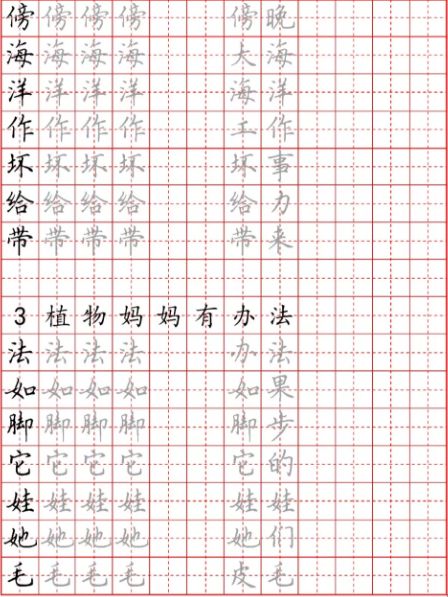 傍傍傍傍 傍晚
海海海海 大海
洋洋洋洋 海洋
作作作作 工作
坏坏坏坏 坏事
给给给给 给力
带带带带 带来
3植物妈妈有办法
法法法法 办法
如如如如 如果
脚脚脚脚 脚步
它它它它 它的
娃娃娃娃 娃娃
她她她她 她们
毛毛毛毛 皮毛